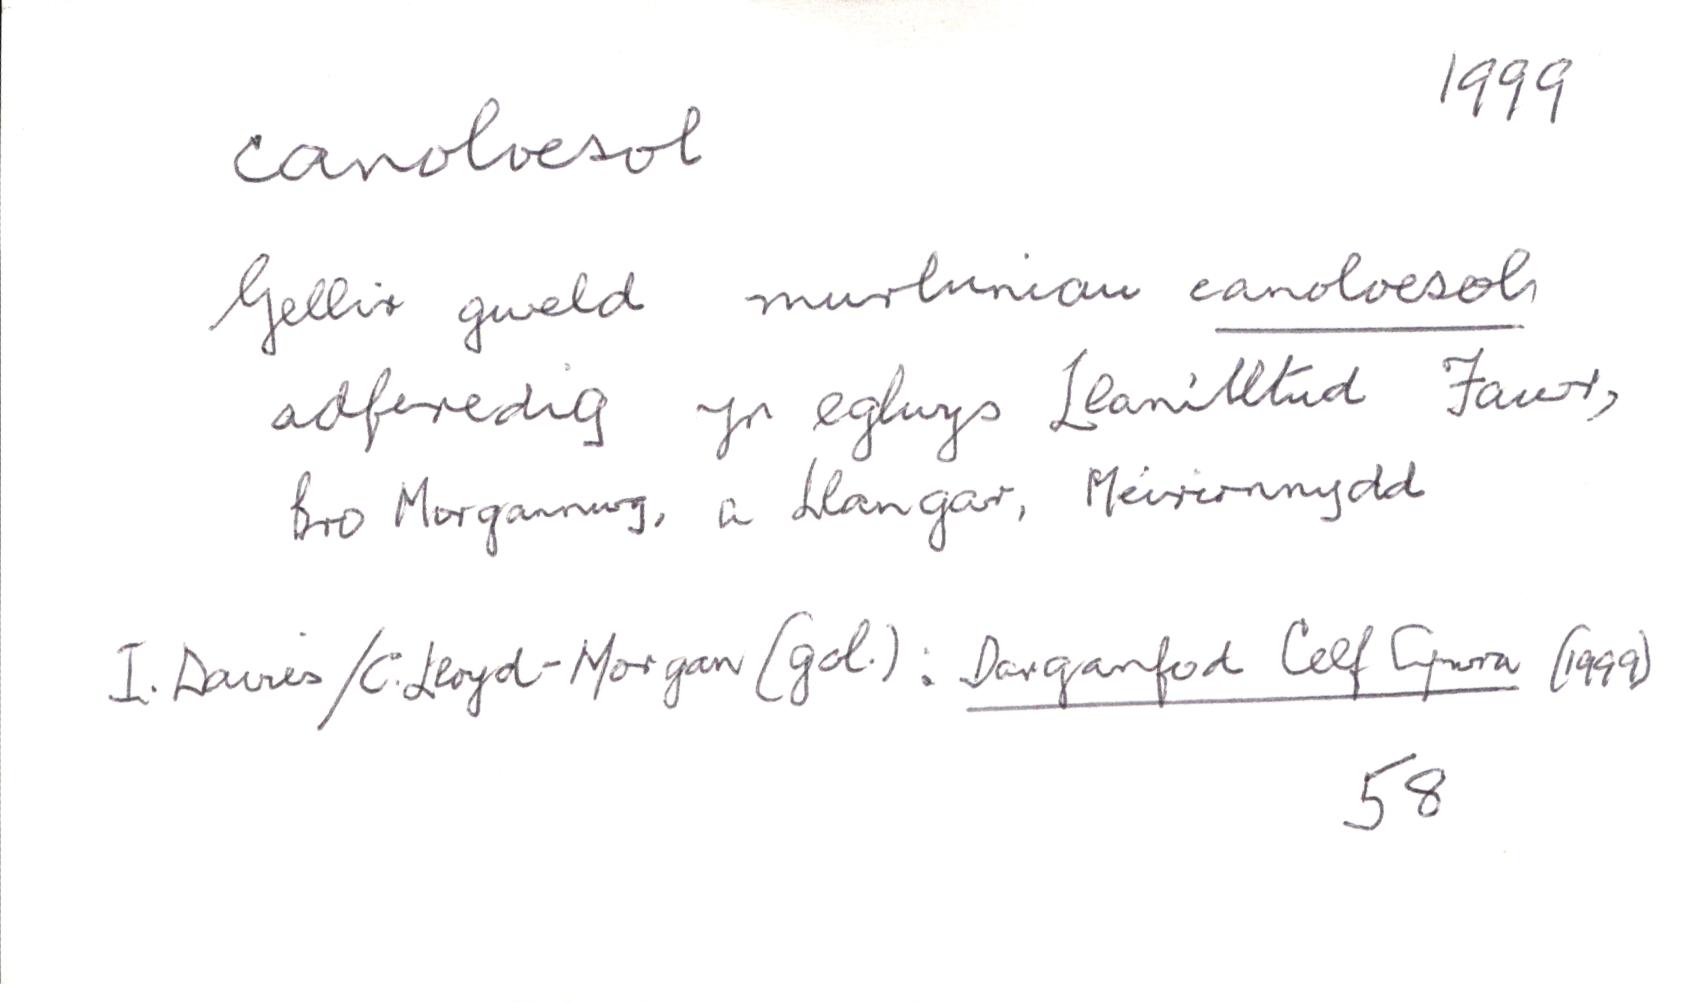 1999
canoloesol
Gellir gweld murluniau canoloesol,
adferedig yn eglwys Llanilltud Fawr,
Bro Morgannwg, a Llangar, Meirionnydd
I. Davies/C. Lloyd-Morgan (gol.): Darganfod Celf Cymru (1999)
58